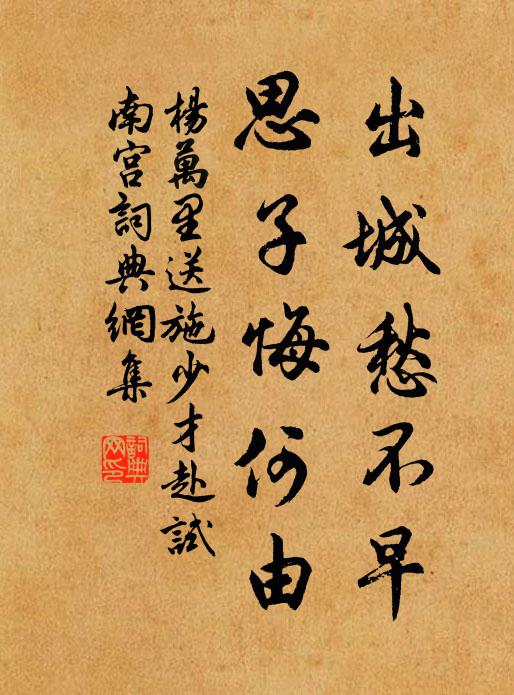 出城愁不早
思子悔何由
楊萬里送施少才赴試
南宫詞典網集
詞典
网印